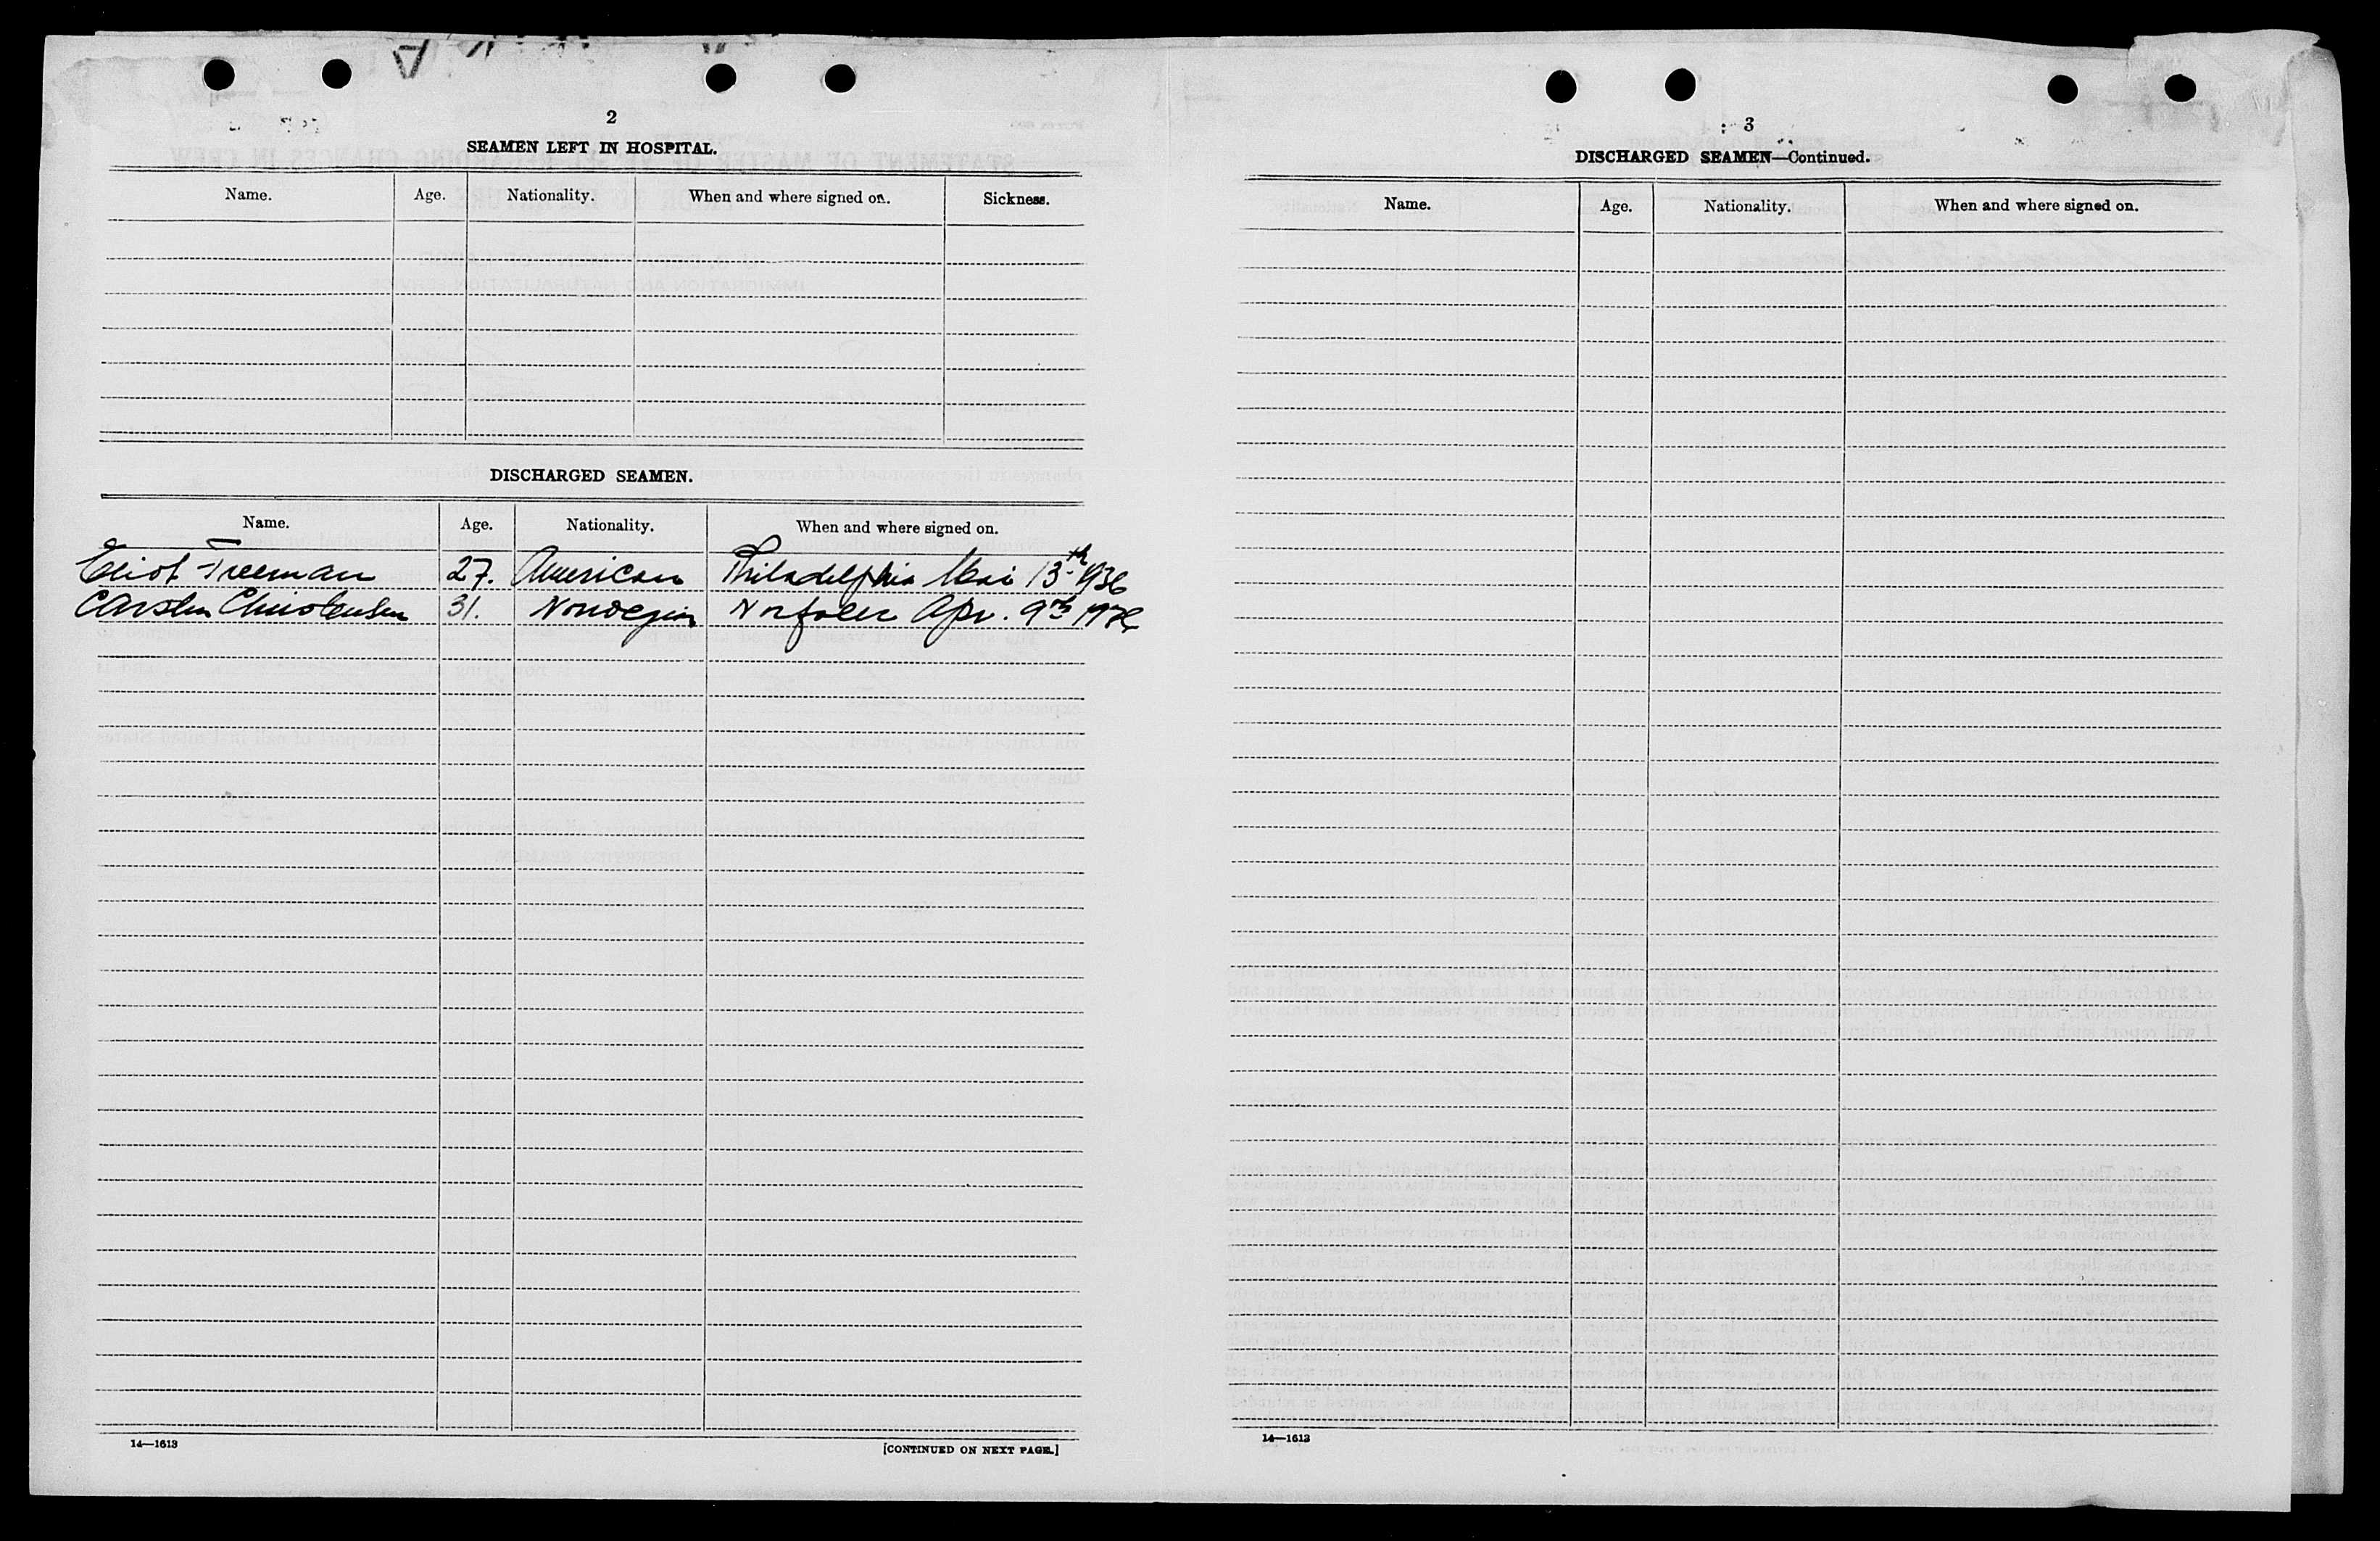 2
SEAMEN LEFT IN HOSPITAL.
Name. Age. Nationality. When and where signed on. Sickness.
DISCHARGED SEAMEN.
Name. Age. Nationality. When and where signed on.
Eliot Freeman 27. American Philadelphia Mai 13th 1936
Carsten Christensen 31. Norwegian Norfolk Apr. 9th 1936
14—1613 [CONTINUED ON NEXT PAGE.]
3
DISCHARGED SEAMEN—Continued.
Name. Age. Nationality. When and where signed on.
14—1613